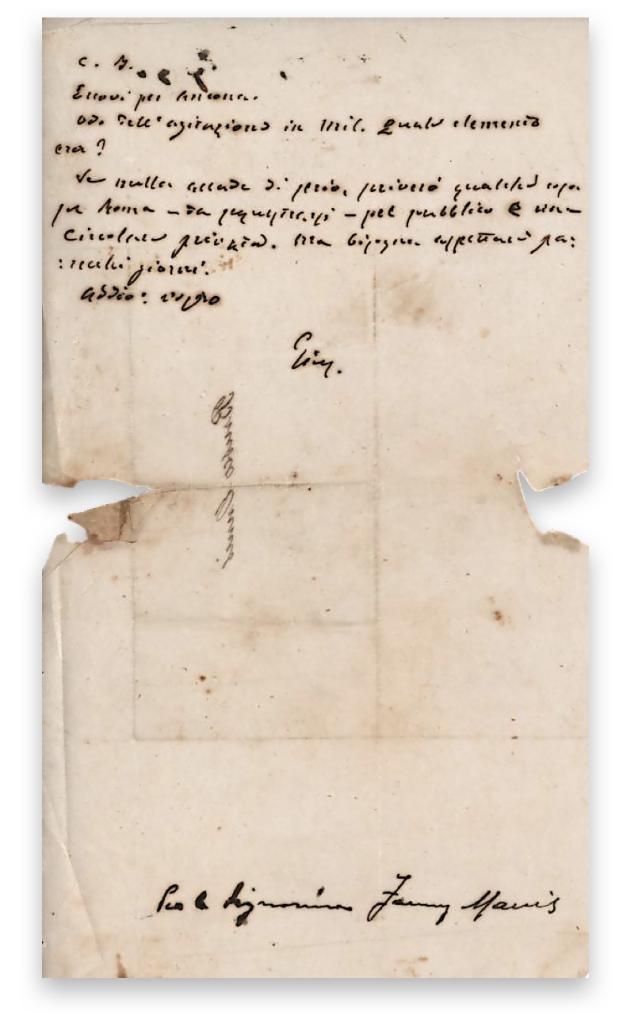 C. B.
Eccovi per Ancona.
Odo dell'agitazione in Mil. Quale elemento
era?
Se nulla accade di serio, scriverò qualche cosa
per Roma – da – pel pubblico e una
Circolare privata. Ma bisogna aspettare pa:
:recchi giorni.
Addio: vostro
Gius.
Per la Signorina Fanny